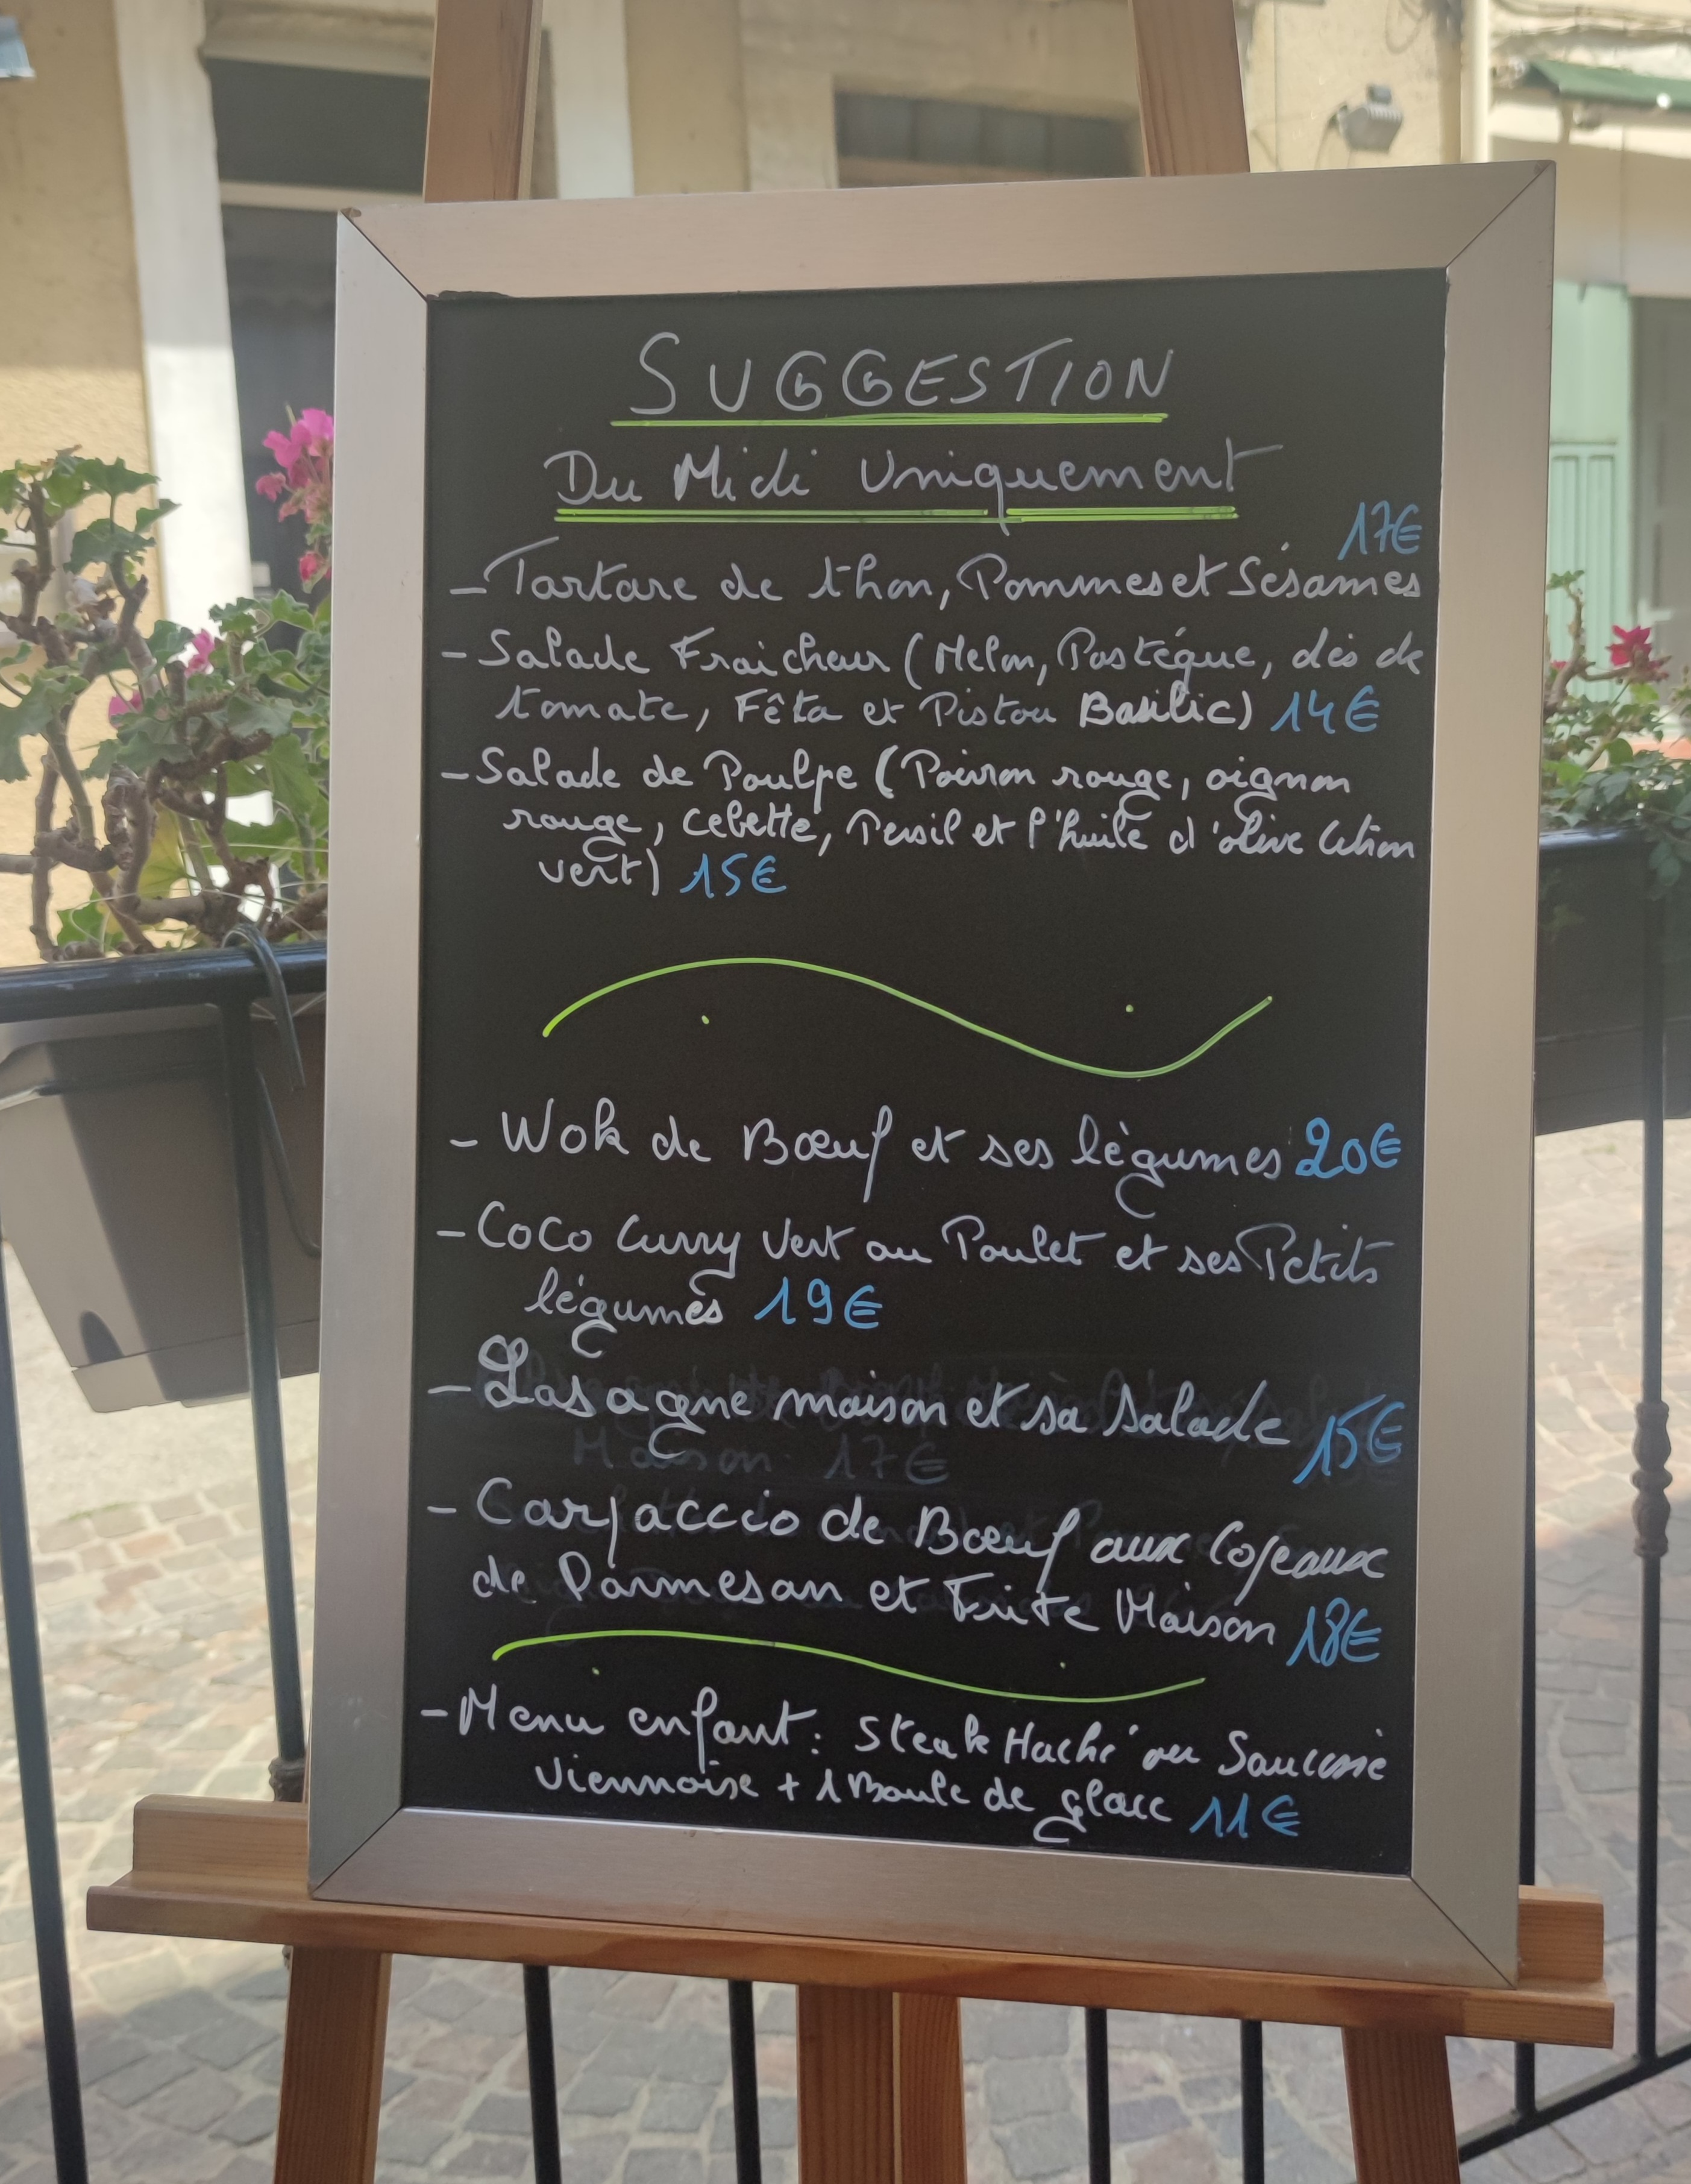 SUGGESTION
Du Midi Uniquement
17€
- Tartare de thon, Pommes et Sésames
- Salade Fraicheur (Melon, Pastégue, dés de
tomate, Fêta et Pistou Basilic) 14€
- Salade de Poulpe (Poivron rouge, oignon
rouge, Cebette, Persil et l'huile d'olive Citron
vert) 15€
- Wok de Bœuf et ses légumes 20€
- Coco Curry Vert au Poulet et ses Petits
légumes 19€
- Lasagne maison et sa salade 15€
Maison 17€
- Carpaccio de Bœuf aux Copeaux
de Parmesan et Frite Maison 18€
- Menu enfant : Steak Haché ou Saucisse
Viennoise + 1 Boule de glace 11€